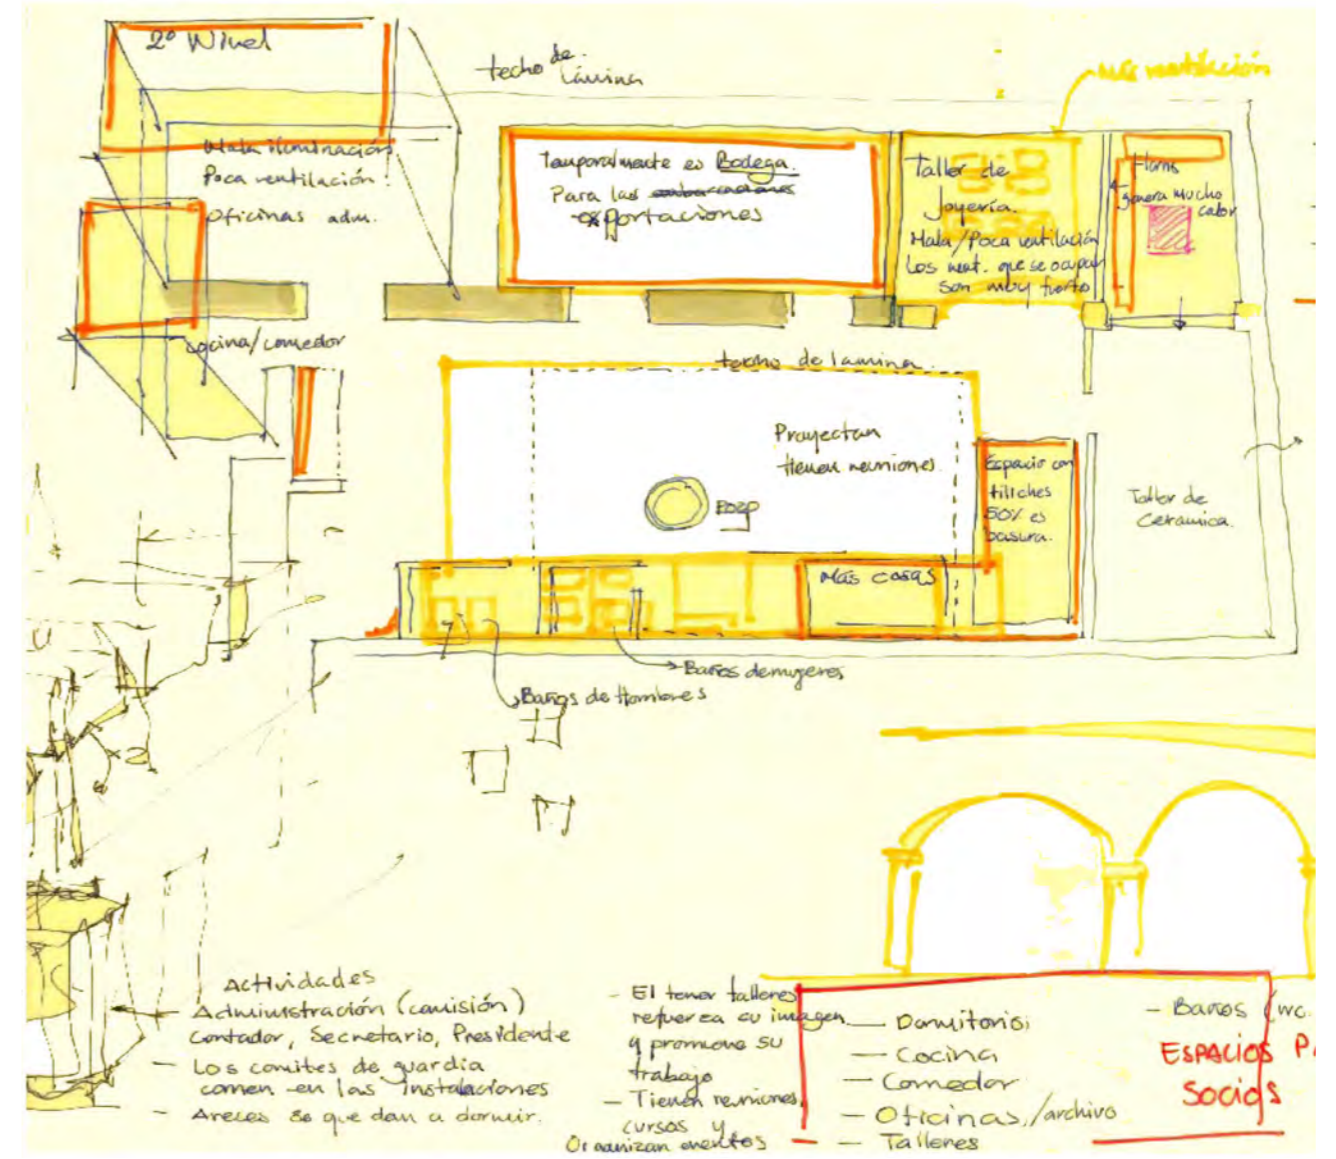 2º Nivel
techo de
lámina
Más ventilación
Mala iluminación
Poca ventilación.
Oficinas adm.
Temporalmente es Bodega.
Para las
exportaciones
Taller de
Joyería.
Mala/Poca ventilación
Los mat. que se ocupan
son muy fuerte
Horns
genera mucho
calor
cocina/comedor
techo de lamina.
Proyectan
tienen reuniones.
Pozo
Espacio con
tiliches
50% es
basura.
Taller de
Ceramica.
Más cosas
Baños de mujeres
Baños de Hombres
Actividades
Administración (comisión)
Contador, Secretario, Presidente
- Los comites de guardia
comen en las instalaciones
- Aveces se que dan a dormir.
- El tener talleres
refuerza su imagen
y promueve su
trabajo
- Tienen reuniones,
cursos y
Organizan eventos
- Dormitorios
- Cocina
- Comedor
- Oficinas,/archivo
- Talleres
- Baños (wc.
ESPACIOS P
SOCIOS